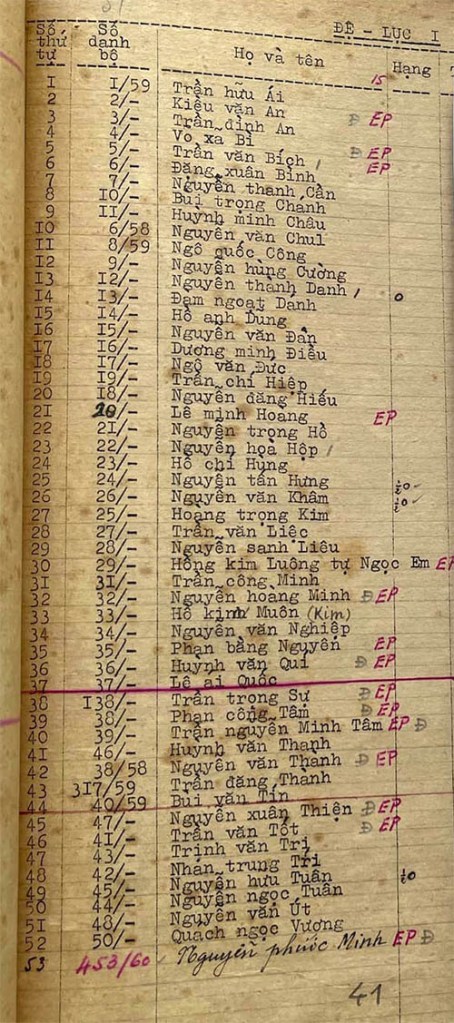 ĐỆ - LỤC I
Số thứ tự Số danh bộ Họ và tên Hạng
15
1 1/59 Trần hữu Ái
2 2/- Kiều văn An
3 3/- Trần đình An Đ EP
4 4/- Võ xa Bi
5 5/- Trần văn Bích / Đ EP
6 6/- Đặng xuân Bình EP
7 7/- Nguyễn thanh Cần
8 10/- Bùi trọng Chánh
9 11/- Huỳnh minh Châu
10 6/58 Nguyễn văn Chul
11 8/59 Ngô quốc Công
12 9/- Nguyễn hùng Cường
13 12/- Nguyễn thành Danh /
14 13/- Đam ngoạt Danh 0
15 14/- Hồ anh Dũng
16 15/- Nguyễn văn Đàn
17 16/- Dương minh Điều
18 17/- Ngô văn Đức
19 19/- Trần chí Hiệp
20 18/- Nguyễn đăng Hiếu
21 20/- Lê minh Hoàng EP
22 21/- Nguyễn trọng Hồ
23 22/- Nguyễn hoà Hộp /
24 23/- Hồ chí Hùng
25 24/- Nguyễn tấn Hưng
26 26/- Nguyễn văn Khâm
27 25/- Hoàng trọng Kim
28 27/- Trần văn Liệc
29 28/- Nguyễn sanh Liêu
30 29/- Hồng kim Luông tự Ngọc Em EP
31 31/- Trần công Minh
32 32/- Nguyễn hoang Minh Đ EP
33 33/- Hồ kinh Muôn (Kim)
34 34/- Nguyễn văn Nghiệp
35 35/- Phan bằng Nguyên EP
36 36/- Huỳnh văn Quí Đ EP
37 37/- Lê ai Quốc
38 138/- Trần trọng Sự Đ EP
39 38/- Phan công Tâm Đ EP
40 39/- Trần nguyên Minh Tâm EP Đ
41 46/- Huỳnh văn Thanh
42 38/58 Nguyễn văn Thanh Đ EP
43 317/59 Trần đăng Thành
44 40/59 Bùi văn Tín
45 47/- Nguyễn xuân Thiện Đ EP
46 41/- Trần văn Tốt Đ EP
47 43/- Trịnh văn Trị
48 42/- Nhan trung Trí
49 45/- Nguyễn hữu Tuân
50 44/- Nguyễn ngọc Tuân
51 48/- Nguyễn văn Út
52 50/- Quach ngọc Vương
53 453/60 Nguyễn phước Minh EP Đ
41